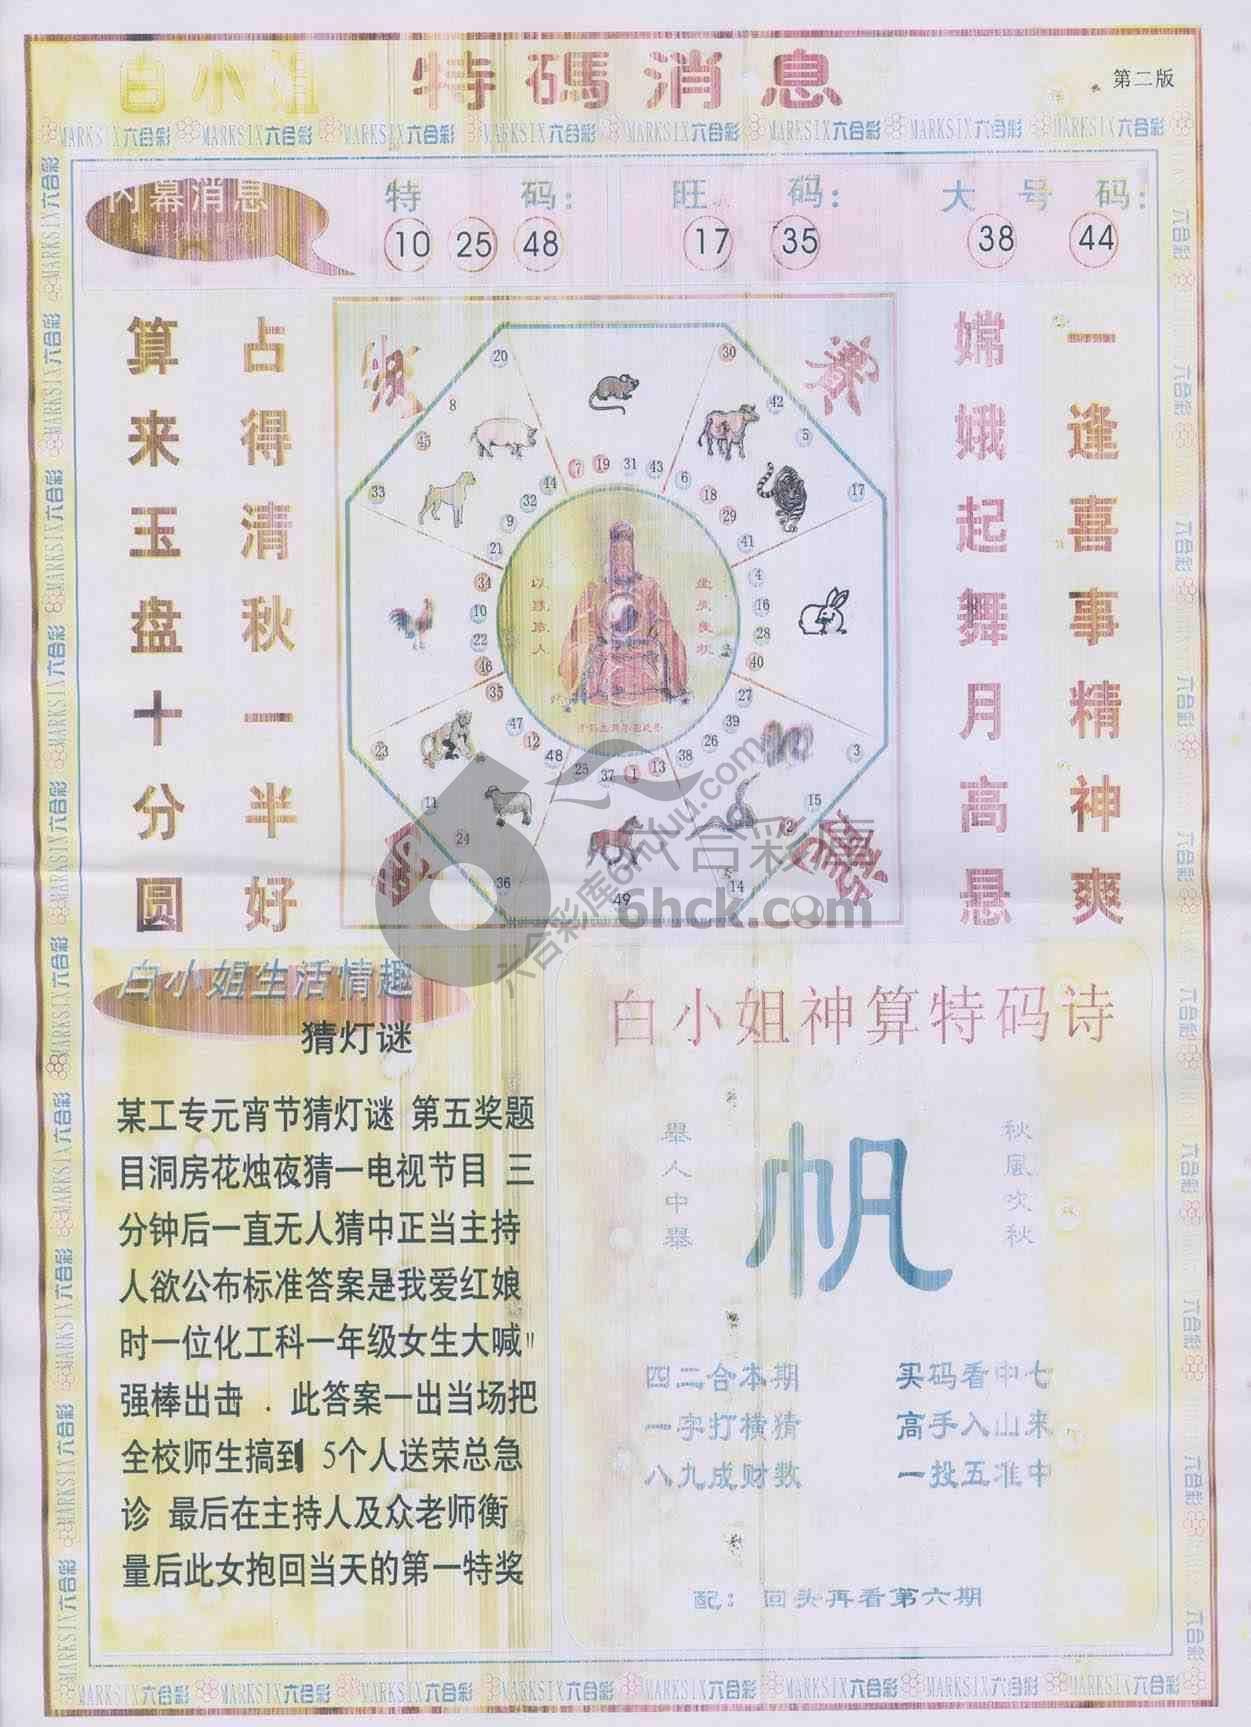 白小姐 特碼消息
第二版
MARKSIX六合彩 MARKSIX六合彩 MARKSIX六合彩 MARKSIX六合彩 MARKSIX六合彩 MARKSIX六合彩 MARKSIX六合彩 MARKSIX六合彩
内幕消息
特 码:
10 25 48
旺 码:
17 35
大 号 码:
38 44
一逢喜事精神爽
嫦娥起舞月高悬
占得清秋一半好
算来玉盘十分圆
20 30
8 42
45 5
33 17
7 19 31 43
44 6
32 18
9 29
21 41
34 4
10 16
22 28
46 40
35 27
47 39
12 26
48 38
25 37 1 13
23 3
11 15
24 2
36 14
49
六合彩库
6hck.com
白小姐生活情趣
猜灯谜
某工专元宵节猜灯谜 第五奖题
目洞房花烛夜猜一电视节目 三
分钟后一直无人猜中正当主持
人欲公布标准答案是我爱红娘
时一位化工科一年级女生大喊"
强棒出击 . 此答案一出当场把
全校师生搞到 5个人送荣总急
诊 最后在主持人及众老师衡
量后此女抱回当天的第一特奖
白小姐神算特码诗
秋風吹秋
帆
舉人中舉
四二合本期 买码看中七
一字打横猜 高手入山来
八九成财数 一投五准中
配: 回头再看第六期
MARKSIX六合彩 MARKSIX六合彩 MARKSIX六合彩 MARKSIX六合彩 MARKSIX六合彩 MARKSIX六合彩 MARKSIX六合彩 MARKSIX六合彩